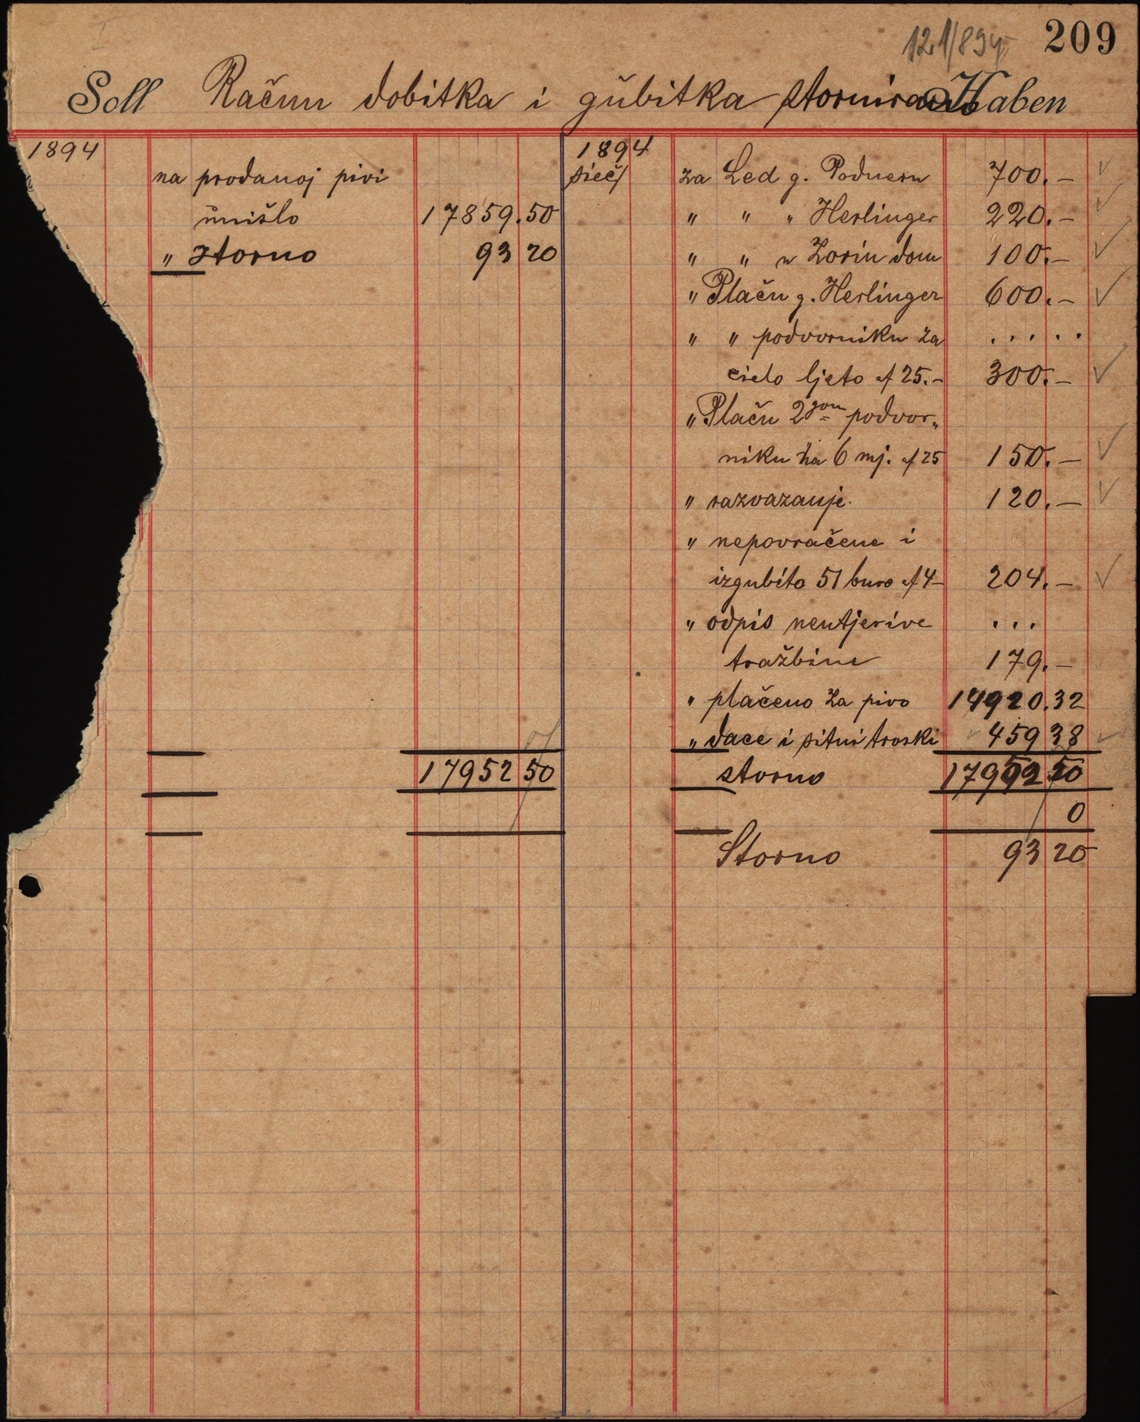 209
Soll Račun dobitka i gubitka Haben
1894
na prodanoj pivi
unišlo 17859.50
" Storno 93 20
17952 50
1894
sieč/ za Led g. 700.–
" " " Herlinger 220.–
" " " Zorin dom 100.–
" Plaću g. Herlinger 600.–
" " podvorniku za . . . . .
cielo ljeto à 25.– 300.–
" Plaću 2gom podvor„
niku za 6 mj. à 25 150.–
" razvazanje. 120.–
" nepovraćene i
izgubito 51 bure à 4– 204.–
" odpis neutjerive . . .
tražbine 179.–
" plaćeno za pivo 14920.32
" dace i sitni troski 459 38
storno
0
Storno 93 20